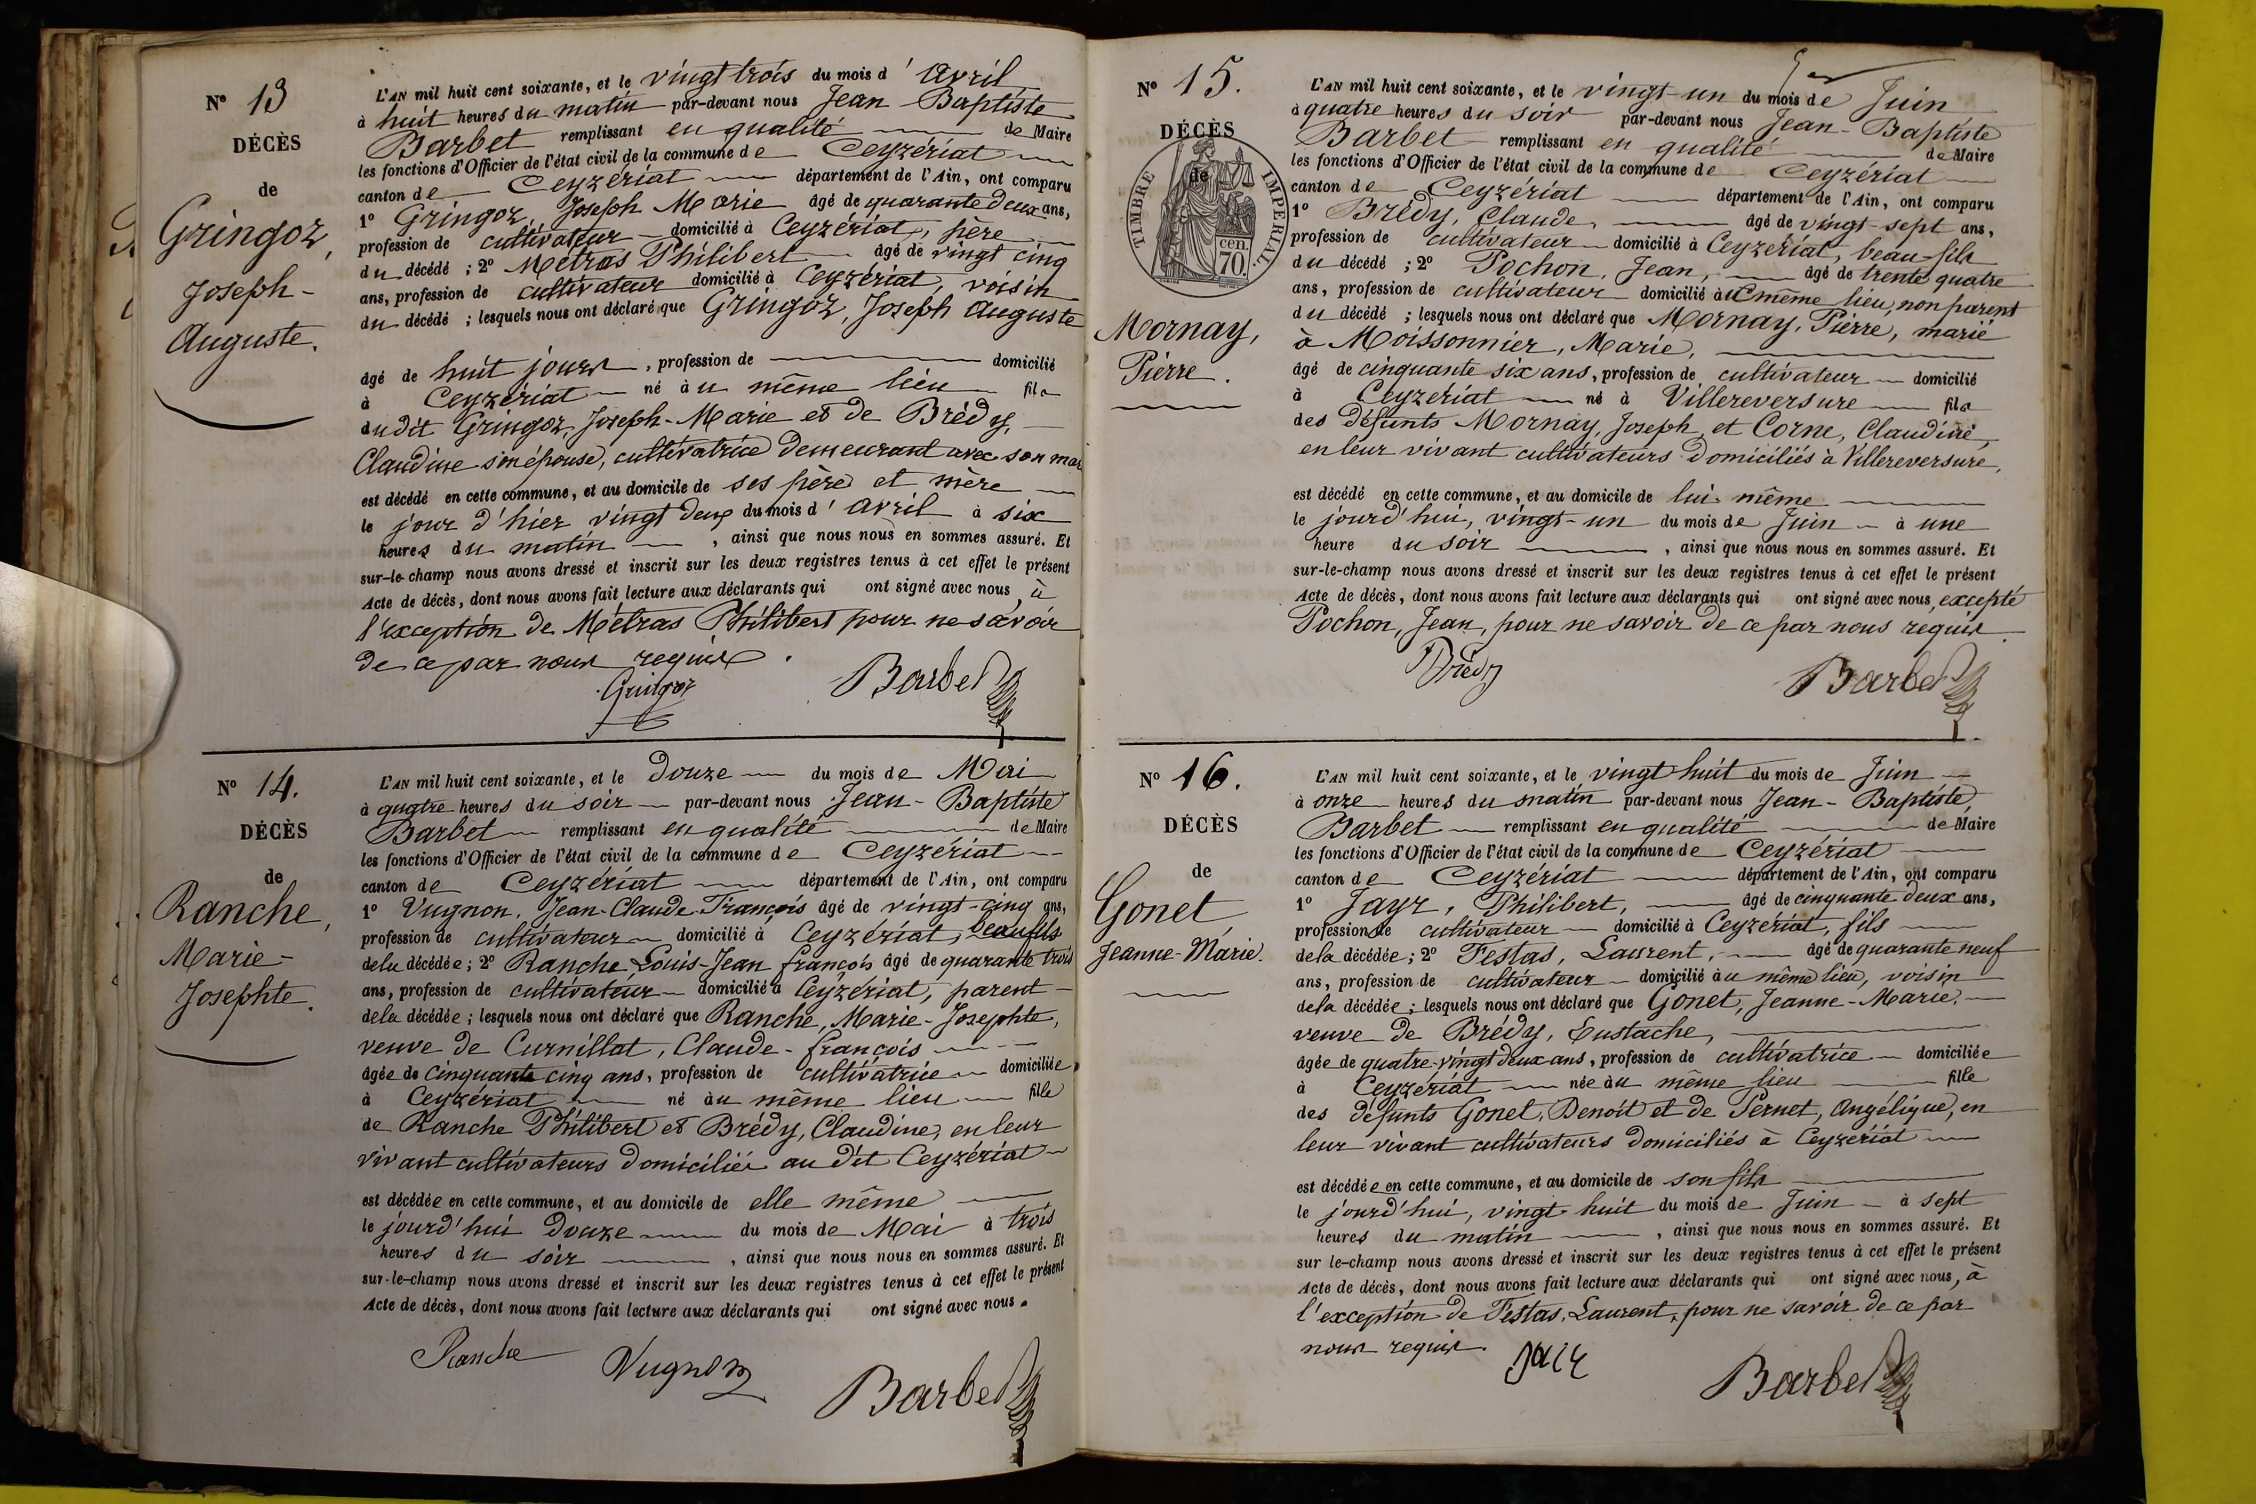 N° 13
DÉCÈS
de
Gringoz,
Joseph-
Auguste.
L'AN mil huit cent soixante, et le vingt trois du mois d'Avril
à huit heures du matin par-devant nous Jean Baptiste
Barbet remplissant en qualité de Maire
les fonctions d'Officier de l'état civil de la commune de Ceyzériat
canton de Ceyzériat département de l'Ain, ont comparu
1° Gringoz, Joseph Marie âgé de quarante deux ans,
profession de cultivateur domicilié à Ceyzériat, père
du décédé ; 2° Metras Philibert âgé de vingt cinq
ans, profession de cultivateur domicilié à Ceyzériat, voisin
du décédé ; lesquels nous ont déclaré que Gringoz, Joseph Auguste
âgé de huit jours, profession de domicilié
à Ceyzériat né au même lieu fils
dudit Gringoz, Joseph-Marie et de Brédy,
Claudine son épouse, cultivatrice demeurant avec son mari
est décédé en cette commune, et au domicile de ses père et mère
le jour d'hier vingt deux du mois d'Avril à six
heures du matin , ainsi que nous nous en sommes assuré. Et
sur-le-champ nous avons dressé et inscrit sur les deux registres tenus à cet effet le présent
Acte de décès, dont nous avons fait lecture aux déclarants qui ont signé avec nous, à
l'exception de Métras Philibert pour ne savoir
de ce par nous requis.
Gringoz Barbet
N° 14.
DÉCÈS
de
Ranche,
Marie-
Josephte.
L'AN mil huit cent soixante, et le douze du mois de Mai
à quatre heures du soir par-devant nous Jean-Baptiste
Barbet remplissant en qualité de Maire
les fonctions d'Officier de l'état civil de la commune de Ceyzériat
canton de Ceyzériat département de l'Ain, ont comparu
1° Vugnon, Jean-Claude-François âgé de vingt-cinq ans,
profession de cultivateur domicilié à Ceyzériat, beaufils
de la décédée ; 2° Ranche Louis-Jean françois âgé de quarante trois
ans, profession de cultivateur domicilié à Ceyzériat, parent
de la décédée ; lesquels nous ont déclaré que Ranche, Marie-Josephte,
veuve de Curnillat, Claude-françois
âgée de cinquante cinq ans, profession de cultivatrice domiciliée
à Ceyzériat né au même lieu fille
de Ranche Philibert et Brédy, Claudine, en leur
vivant cultivateurs domiciliés au dit Ceyzériat
est décédée en cette commune, et au domicile de elle même
le jourd'hui douze du mois de Mai à trois
heures du soir , ainsi que nous nous en sommes assuré. Et
sur-le-champ nous avons dressé et inscrit sur les deux registres tenus à cet effet le présent
Acte de décès, dont nous avons fait lecture aux déclarants qui ont signé avec nous.
Ranche Vugnon Barbet
N° 15.
DÉCÈS
de
TIMBRE IMPÉRIAL
70 cen.
Mornay,
Pierre.
L'AN mil huit cent soixante, et le vingt-un du mois de Juin
à quatre heures du soir par-devant nous Jean-Baptiste
Barbet remplissant en qualité de Maire
les fonctions d'Officier de l'état civil de la commune de Ceyzériat
canton de Ceyzériat département de l'Ain, ont comparu
1° Brédy, Claude, âgé de vingt-sept ans,
profession de cultivateur domicilié à Ceyzériat, beau-fils
du décédé ; 2° Pochon, Jean, âgé de trente quatre
ans, profession de cultivateur domicilié au même lieu, non parent
du décédé ; lesquels nous ont déclaré que Mornay, Pierre, marié
à Moissonnier, Marie,
âgé de cinquante six ans, profession de cultivateur domicilié
à Ceyzériat né à Villereversure fils
des défunts Mornay, Joseph et Corne, Claudine,
en leur vivant cultivateurs domiciliés à Villereversure,
est décédé en cette commune, et au domicile de lui-même
le jourd'hui, vingt-un du mois de Juin à une
heure du soir , ainsi que nous nous en sommes assuré. Et
sur-le-champ nous avons dressé et inscrit sur les deux registres tenus à cet effet le présent
Acte de décès, dont nous avons fait lecture aux déclarants qui ont signé avec nous, excepté
Pochon, Jean, pour ne savoir de ce par nous requis.
Brédy Barbet
N° 16.
DÉCÈS
de
Gonet
Jeanne-Marie.
L'AN mil huit cent soixante, et le vingt huit du mois de Juin
à onze heures du matin par-devant nous Jean-Baptiste,
Barbet remplissant en qualité de Maire
les fonctions d'Officier de l'état civil de la commune de Ceyzériat
canton de Ceyzériat département de l'Ain, ont comparu
1° Jayr, Philibert, âgé de cinquante deux ans,
profession de cultivateur domicilié à Ceyzériat, fils
de la décédée ; 2° Festas, Laurent, âgé de quarante neuf
ans, profession de cultivateur domicilié au même lieu, voisin
de la décédée ; lesquels nous ont déclaré que Gonet, Jeanne-Marie,
veuve de Brédy, Eustache,
âgée de quatre-vingt deux ans, profession de cultivatrice domiciliée
à Ceyzériat née au même lieu fille
des défunts Gonet, Benoit et de Pernet, Angélique, en
leur vivant cultivateurs domiciliés à Ceyzériat
est décédée en cette commune, et au domicile de son fils
le jourd'hui, vingt-huit du mois de Juin à sept
heures du matin , ainsi que nous nous en sommes assuré. Et
sur le-champ nous avons dressé et inscrit sur les deux registres tenus à cet effet le présent
Acte de décès, dont nous avons fait lecture aux déclarants qui ont signé avec nous, à
l'exception de Festas, Laurent, pour ne savoir de ce par
nous requis.
Jair Barbet